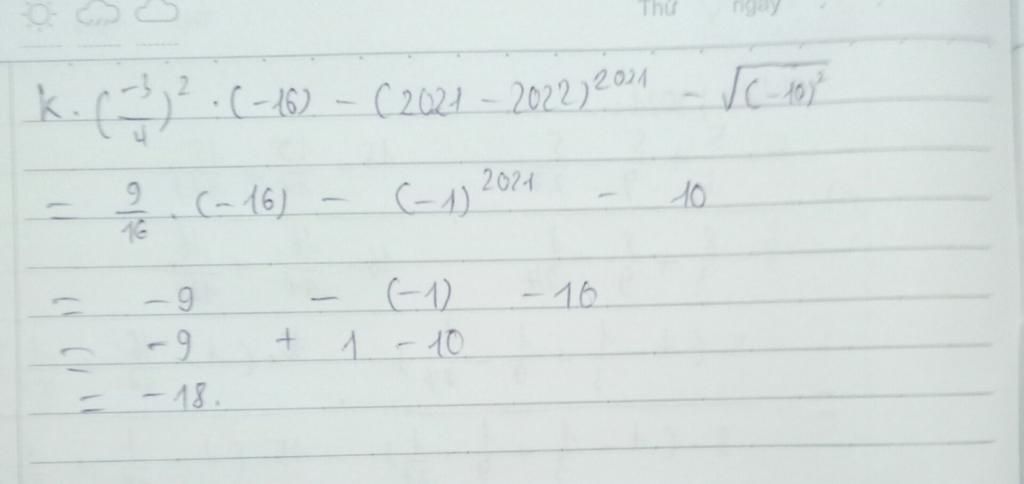 Thứ ngày
k. (-3/4)² . (-16) - (2021 - 2022)²⁰²¹ - √(-10)²
= 9/16 . (-16) - (-1)²⁰²¹ - 10
= -9 - (-1) - 10
= -9 + 1 - 10
= -18.